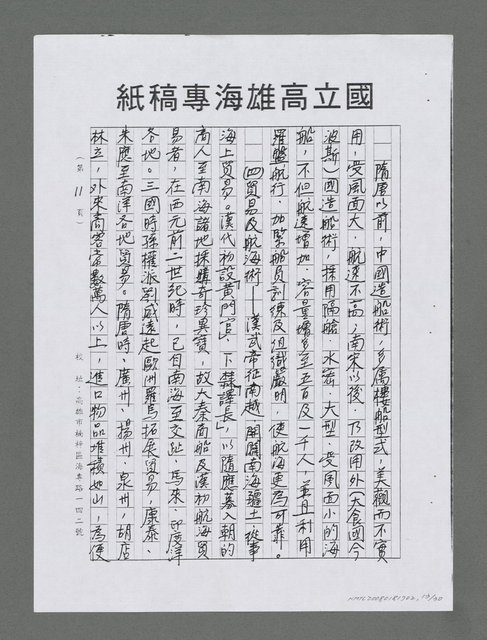 國立高雄海專稿紙
隋唐以前,中國造船術,多屬樓船型式,美觀而不實
用,受風面大,航速不高;南宋以後,乃改用外(大食國今
波斯)國造船術,採用隔艙、水密、大型、受風面小的海
船,不但航速增加,容量增多至五百及一千人,並且利用
羅盤航行,加緊船員訓練及組織嚴明,使航海更為可靠。
(四)貿易及航海術——漢武帝征南越,開闢南海疆土,從事
海上貿易。漢代初設「黃門官」、下隸「譯長」,以隨應募入朝的
商人至南海諸地採購奇珍異寶,故大秦商船及漢初航海貿
易者,在西元前二世紀時,已自南海至交趾、馬來、印度洋
各地。三國時孫權派劉咸遠赴歐洲羅馬拓展貿易,康泰、
朱應至南洋各地貿易。隋唐時,廣州、揚州、泉州,胡店
林立,外來商客常數萬人以上,進口物品堆積如山,為便
(第 11 頁)
校址:高雄市楠梓區海專路一四二號
HMLC20080181702, 13/30